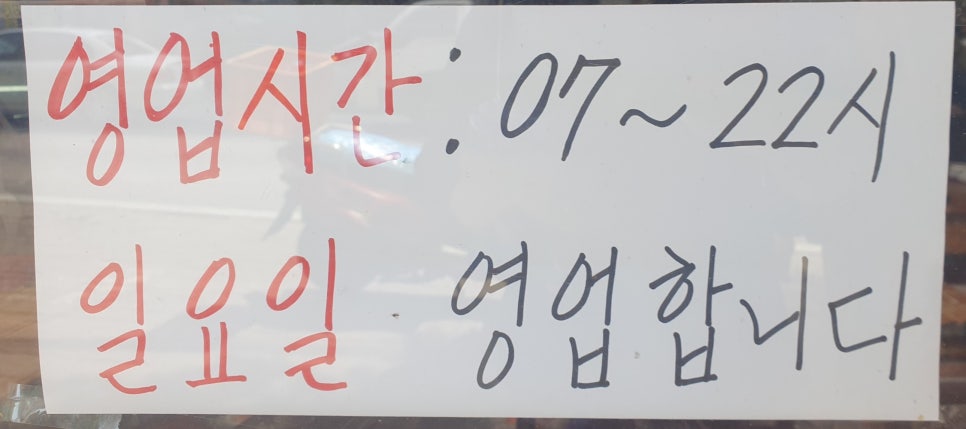 영업시간: 07~22시
일요일 영업합니다